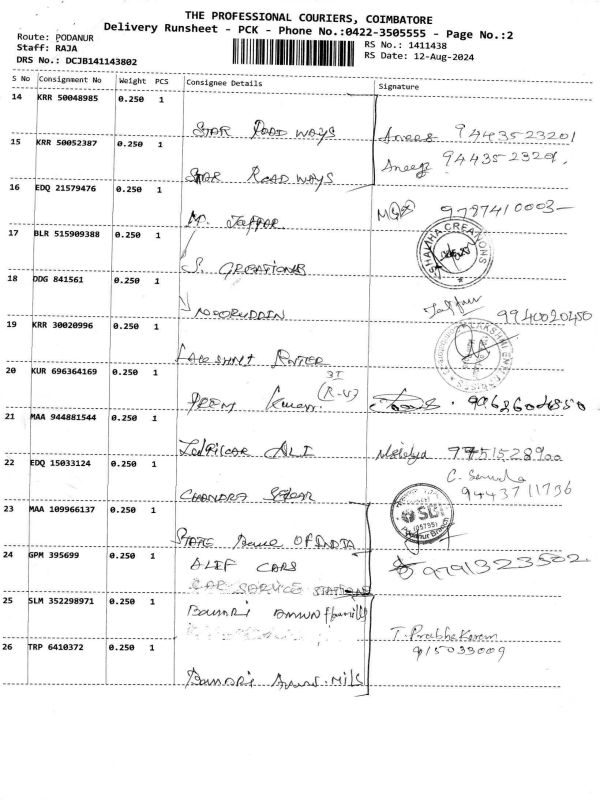 THE PROFESSIONAL COURIERS, COIMBATORE
Delivery Runsheet - PCK - Phone No.:0422-3505555 - Page No.:2
Route: PODANUR
Staff: RAJA
DRS No.: DCJB141143802
RS No.: 1411438
RS Date: 12-Aug-2024
S No Consignment No Weight PCS Consignee Details Signature
14 KRR 50048985 0.250 1
STAR ROAD WAYS Anees 9443523201
15 KRR 50052387 0.250 1
STAR ROAD WAYS 9443523201
16 EDQ 21579476 0.250 1
M. JAFFAR 9787410003
17 BLR 515909388 0.250 1
S. CREATIONS
CREATIONS
18 DDG 841561 0.250 1
NOORUDDIN 9940020450
19 KRR 30020996 0.250 1
LAKSHMI
20 KUR 696364169 0.250 1
PREM Kumar
21 MAA 944881544 0.250 1
ALI
22 EDQ 15033124 0.250 1
CHANDRA 9443711736
23 MAA 109966137 0.250 1
SBI
STATE Bank OF INDIA
24 GPM 395699 0.250 1
ALIF CARS 9791323502
CAR SERVICE STATION
25 SLM 352298971 0.250 1
Bannari Amman
T. Prabhakaran
26 TRP 6410372 0.250 1
Bannari Amman Mills